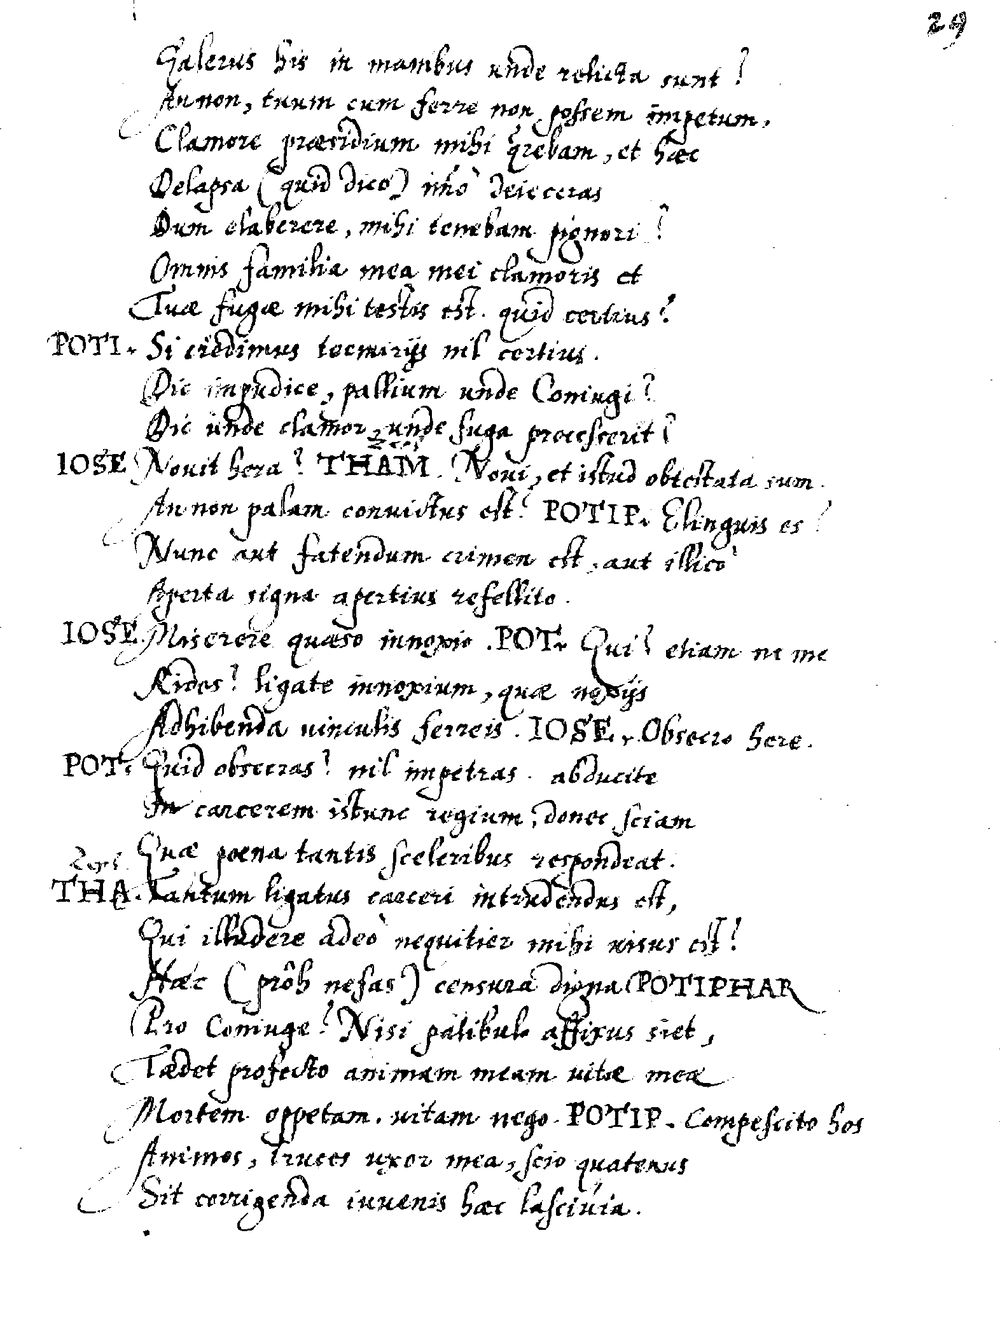 29
Galerus his in manibus unde relicta sunt?
An non, tuum cum ferre non possem impetum,
Clamore præsidium mihi q̃rebam, et hæc
Delapsa (quid dico) imò deieceras
Dum elaberere, mihi tenebam pignori?
Omnis familia mea mei clamoris et
Tuæ fugæ mihi testis est. quid certius?
POTI. Si credimus tecmirijs nil certius.
Dic impudice, pallium unde Coniugi?
Dic unde clamor, unde fuga processerit?
IOSE Novit hera? THAM. Novi, et istud obtestata sum.
An non palam convictus est? POTIP. Elinguis es?
Nunc aut fatendum crimen est, aut illicò
Aperta signa apertius refellito.
IOSE. Miserere quæso innoxio. POT. Qui? etiam ne me
Rides? ligate innoxium, quæ noxijs
Adhibenda vinculis ferreis. IOSE. Obsecro here.
POT. Quid obsecras? nil impetras. abducite
In carcerem istunc regium, donec sciam
Quæ poena tantis sceleribus respondeat.
THA. Tantum ligatus carceri intrudendus est,
Qui illudere adeò nequiter mihi visus est?
Hæc (prôh nefas) censura digna POTIPHAR
Pro Coniuge? Nisi patibulo affixus siet,
Tædet profecto animam meam vitæ meæ
Mortem oppetam. vitam nego. POTIP. Compescito hos
Animos, truces uxor mea, scio quatenus
Sit corrigenda iuvenis hæc lascivia.